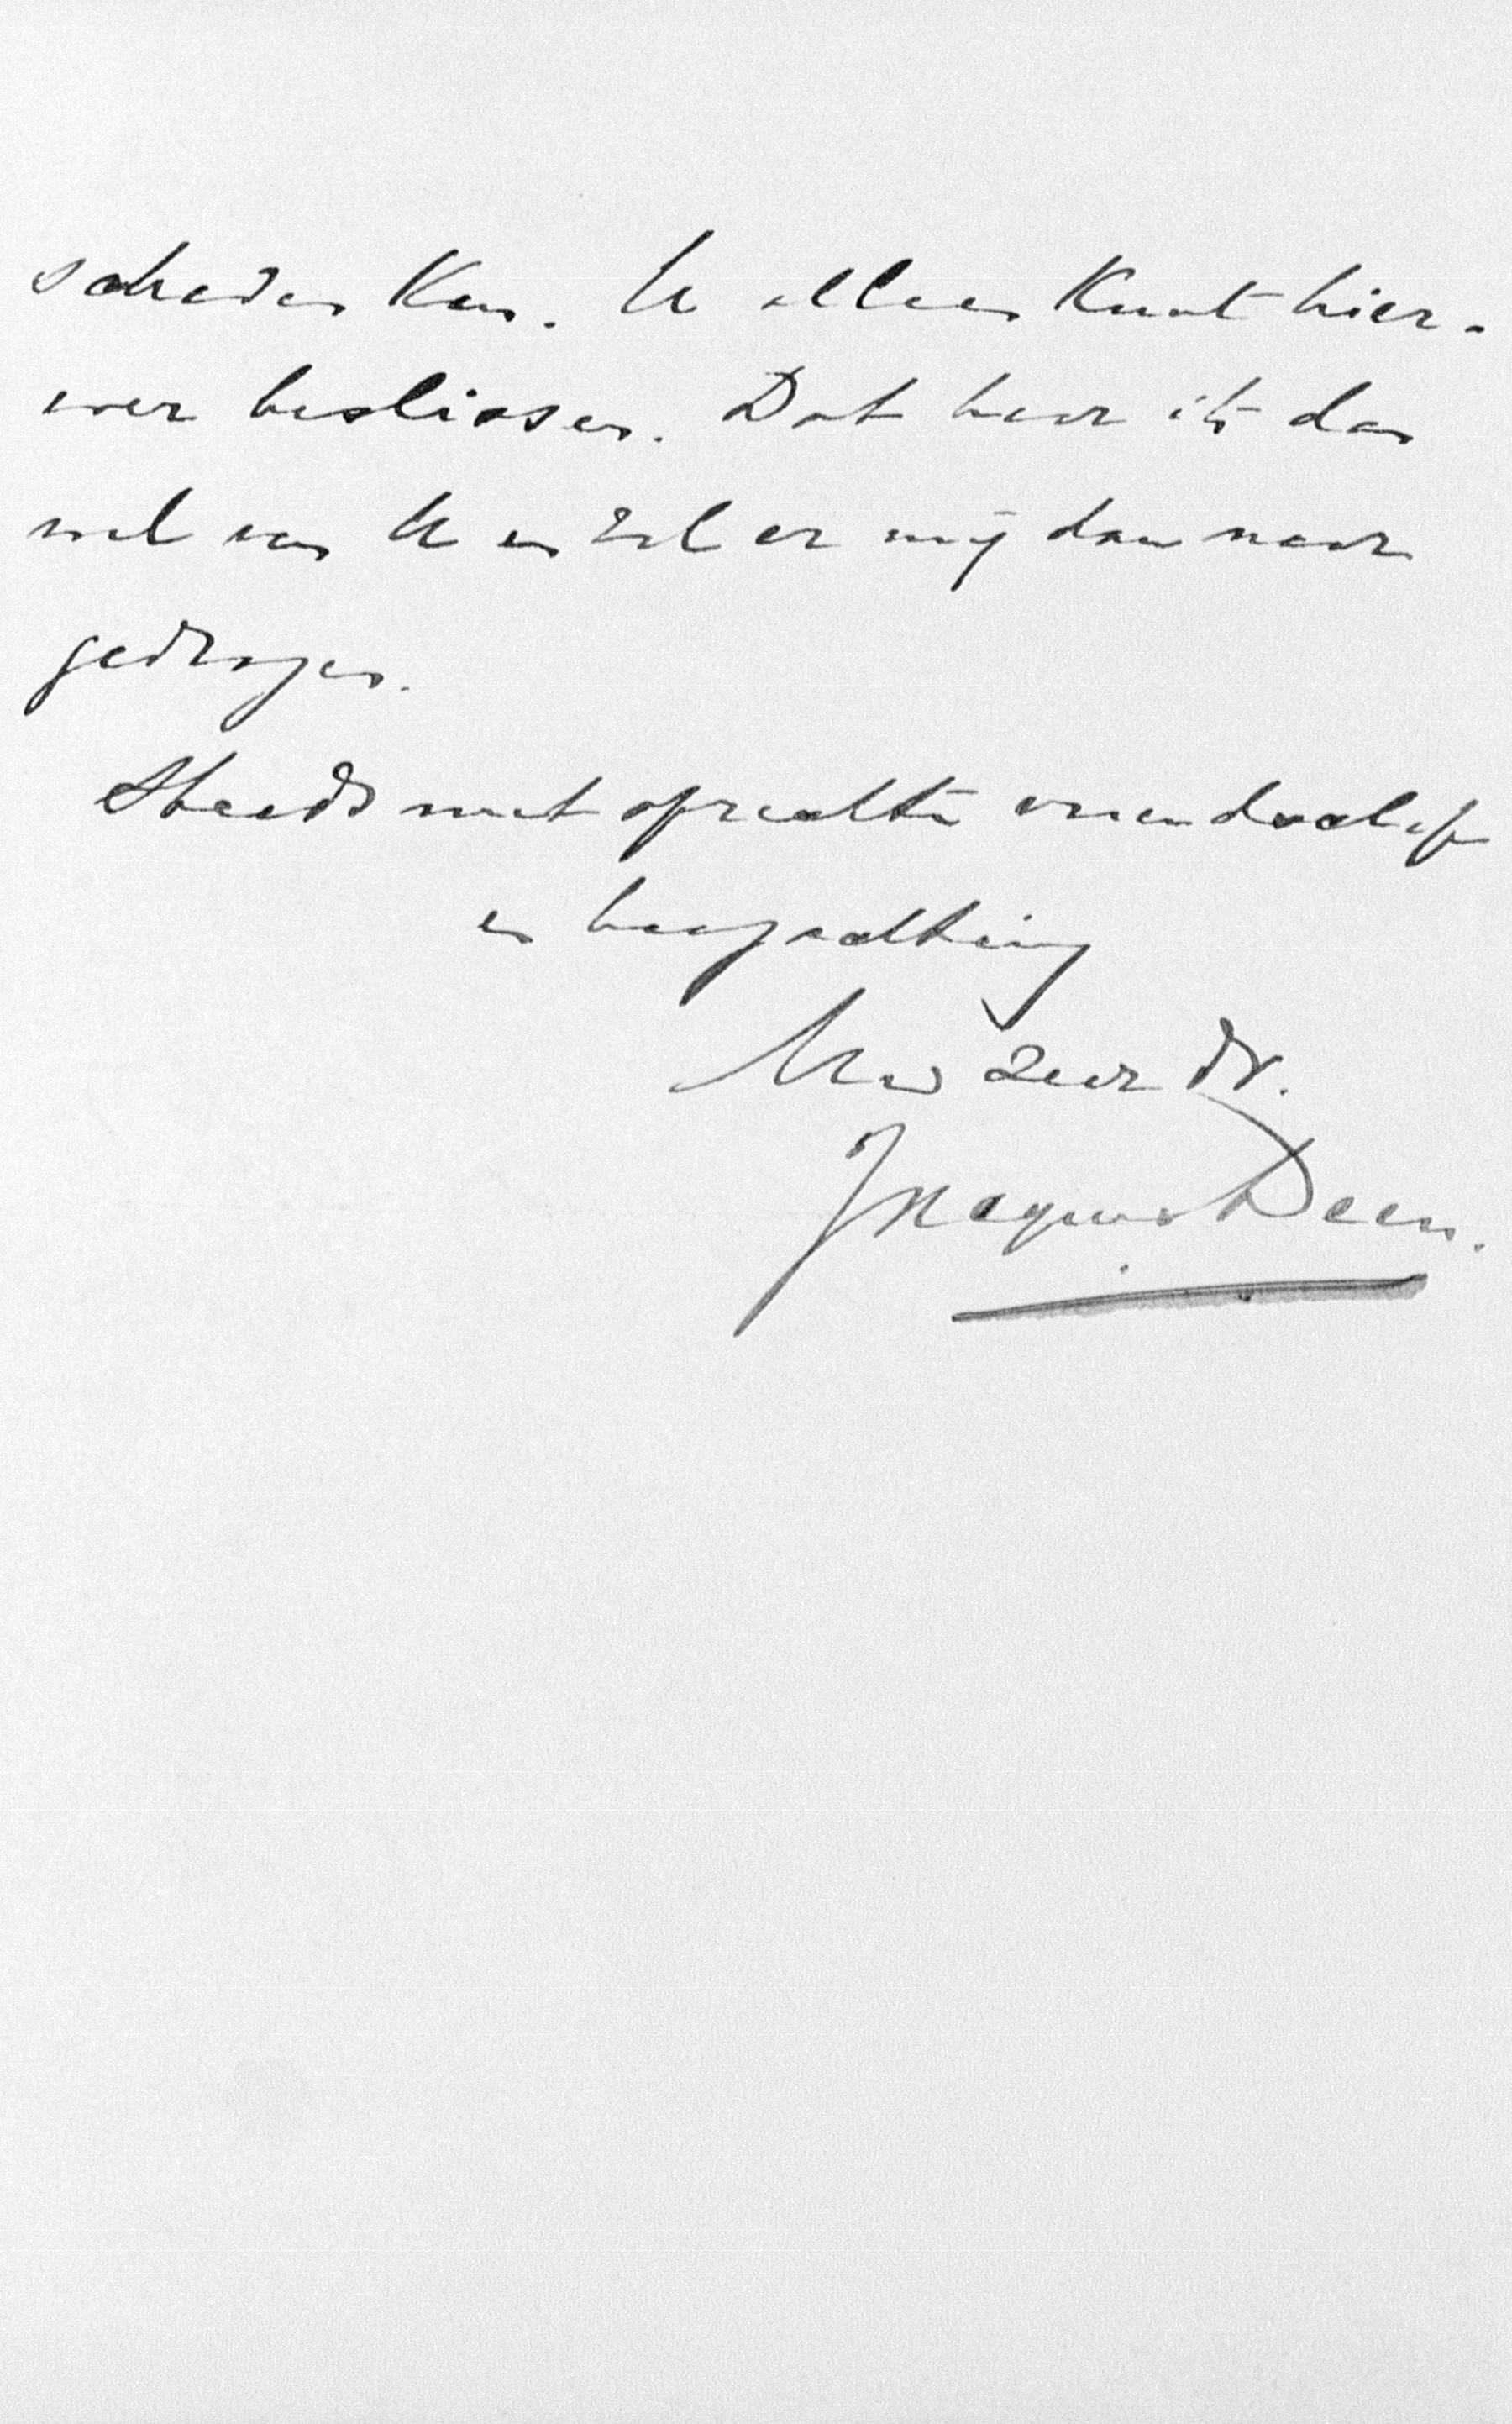 schaden kan. U alleen kunt hier-
over beslissen. Dat hoor ik dan
wel van U en zal er mij dan naar
gedragen.
Steeds met oprechte vriendschap
en hoogachting
Uw zeer dr.
Jacques Deen.